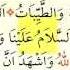 وَالطَّيِّبَاتُ
السَّلَامُ عَلَيْنَا وَ
اللهُ وَأَشْهَدُ أَنَّ